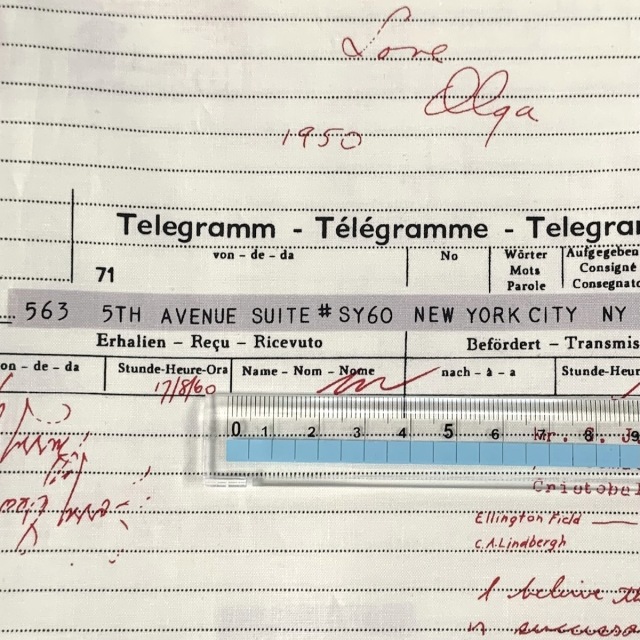 Love
Olga
1950
Telegramm - Télégramme - Telegra
von - de - da
No
Wörter
Mots
Parole
Aufgegeben
Consigné
Consegnato
71
563 5TH AVENUE SUITE # SY60 NEW YORK CITY NY
Erhalien - Reçu - Ricevuto
Befördert - Transmis
on - de - da
Stunde-Heure-Ora
Name - Nom - Nome
nach - à - a
Stunde-Heur
17/8/60
0 1 2 3 4 5 6 7 8 9
Mr. C. J
Cristobal
Ellington Field
C.A.Lindbergh
I belive th
n success